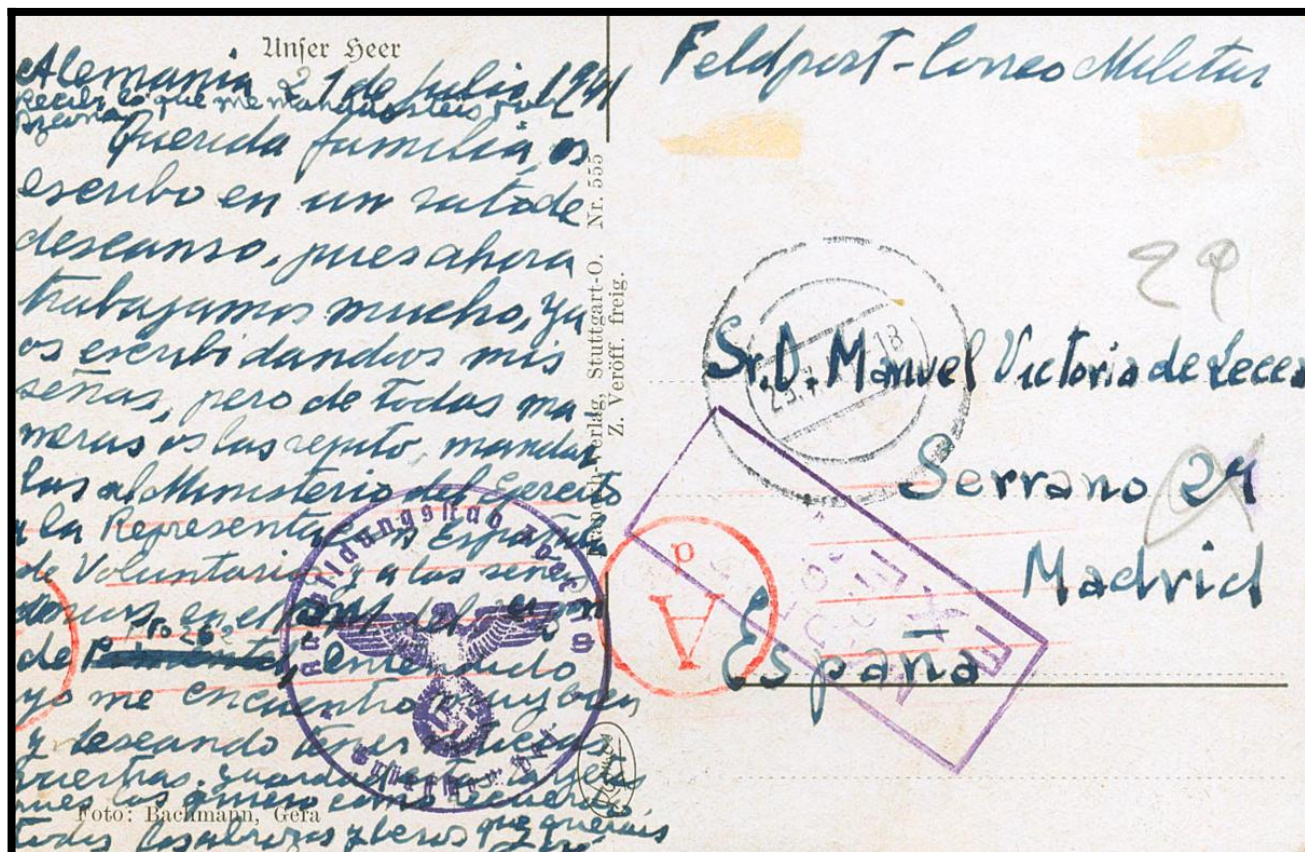 Unser Heer
Alemania 21 de Julio 1941
Recibí lo que me mandasteis por
Querida familia, os
escribo en un rato de
descanso, pues ahora
trabajamos mucho, ya
os escribi dandoos mis
señas, pero de todas ma
neras os las repito, mandar
las al Ministerio del Ejercito
a la Representacion Española
de Voluntarios y a las señas
de
entendido
yo me encuentro muy bien
y deseando tener noticias
vuestras. guardad esta tarjetas
pues las quiero como recuerdo,
todos los abrazos y besos que querais
Foto: Bachmann, Gera
Franckh-Verlag, Stuttgart-O. Nr. 555
Z. Veröff. freig.
Feldpost - Correo Militar
29
Sr. D. Manuel Victoria de Lecea
Serrano 24
Madrid
España
A